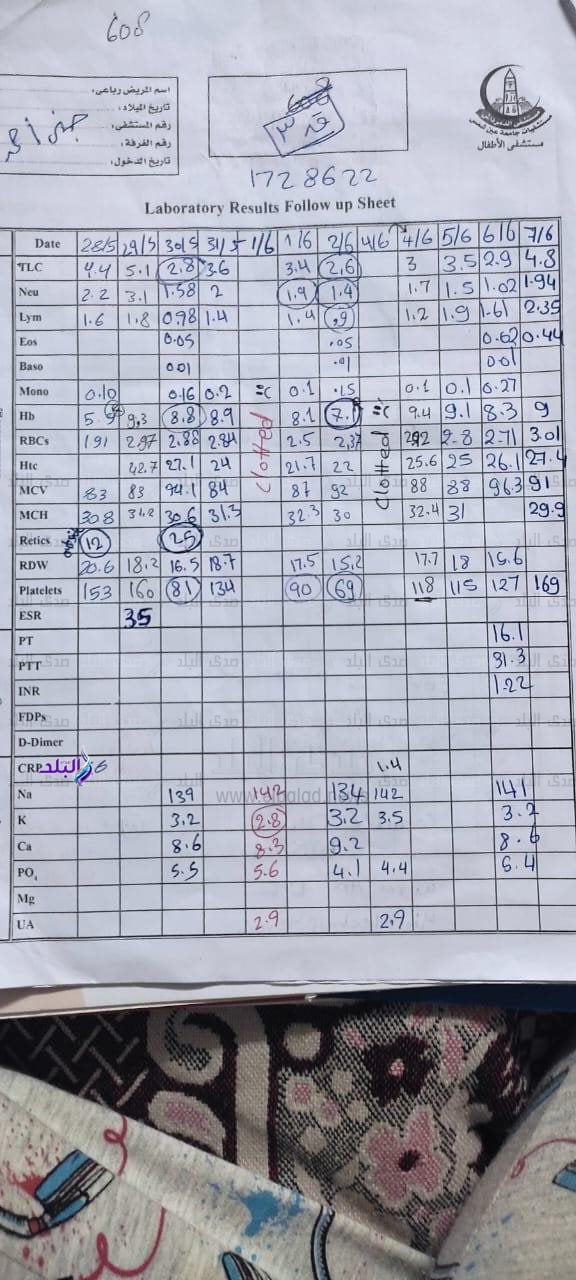 608
اسم المريض رباعى:
تاريخ الميلاد:
رقم المستشفى:
رقم الغرفة:
تاريخ الدخول:
مستشفى الدمرداش
مستشفيات جامعة عين شمس
مستشفى الأطفال
1728622
Laboratory Results Follow up Sheet
Date 28/5 29/5 30/5 31/5 1/6 1/6 2/6 4/6 4/6 5/6 6/6 7/6
TLC 4.4 5.1 2.8 3.6 3.4 2.6 3 3.5 2.9 4.8
Neu 2.2 3.1 1.58 2 1.9 1.4 1.7 1.5 1.02 1.94
Lym 1.6 1.8 0.98 1.4 1.4 .9 1.2 1.9 1.61 2.35
Eos 0.05 .05 0.62 0.44
Baso 0.01 .01 0.01
Mono 0.10 0.16 0.2 0.1 .15 0.1 0.1 0.27
Hb 5.9 9,3 8.8 8.9 8.1 7.1 9.4 9.1 8.3 9
RBCs 191 2.97 2.88 2.84 2.5 2,37 292 2.8 2.71 3.01
Htc 42.7 27.1 24 21.7 22 25.6 25 26.1 27.4
MCV 83 83 94.1 84 87 92 88 88 96.3 91
MCH 308 31.2 30.6 31.3 32.3 30 32.4 31 29.9
Clotted
Clotted
Retics 12 25
RDW 20.6 18.2 16.5 18.7 17.5 15,2 17.7 18 15.6
Platelets 153 160 81 134 90 69 118 115 127 169
ESR 35
PT 16.1
PTT 31.3
INR 1.22
FDPs
D-Dimer
CRP 6 1.4
صدى البلد
Na 139 142 134 142 141
K 3.2 2.8 3.2 3.5 3.2
Ca 8.6 8.3 9.2 8.6
PO4 5.5 5.6 4.1 4.4 5.4
Mg
UA 2.9 2.9